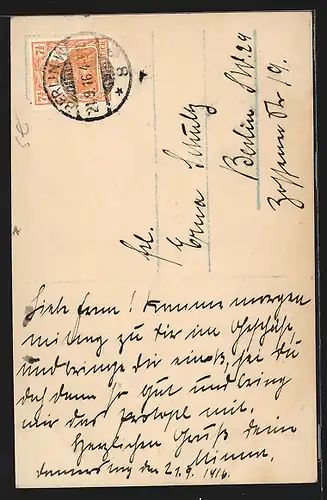 BERLIN W
21.9.16.4-5
* 8
7½
Frl.
Erna Schulz
Berlin SW 29
Zossener Str 19.
Liebe Erna! Komme morgen
mittag zu dir im Geschäft,
und bringe dir etwas, sei du
doch dann so gut und bring
mir das mit.
Herzlichen Gruß deine
donnerstag den 21.9.1916.